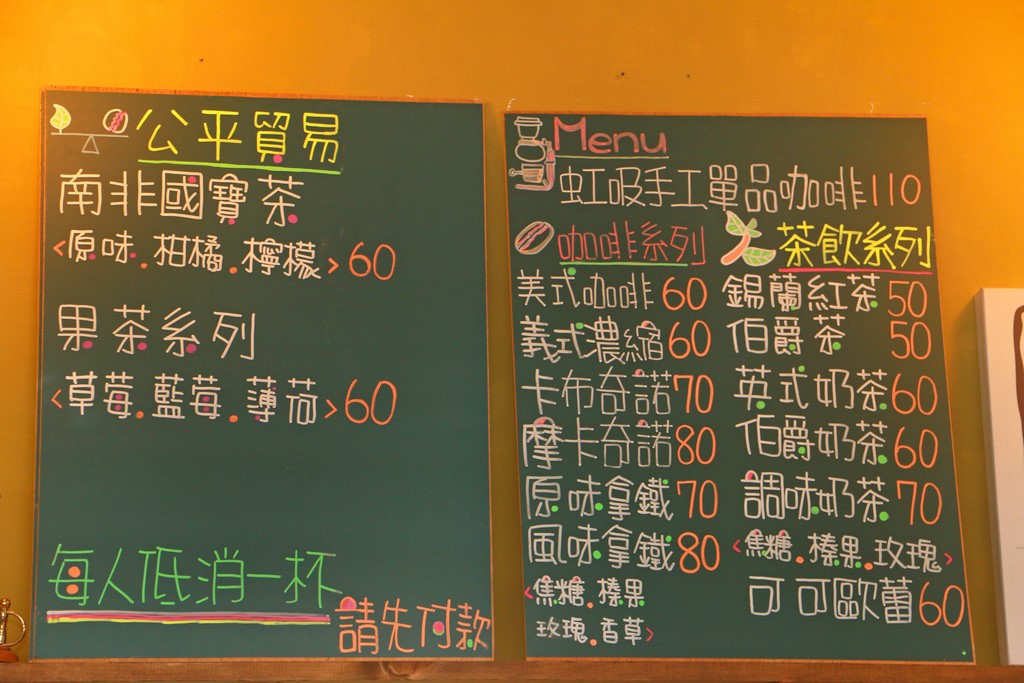 公平貿易
南非國寶茶
<原味.柑橘.檸檬>60
果茶系列
<草莓.藍莓.薄荷>60
每人低消一杯
請先付款
Menu
虹吸手工單品咖啡110
咖啡系列
美式咖啡60
義式濃縮60
卡布奇諾70
摩卡奇諾80
原味拿鐵70
風味拿鐵80
<焦糖.榛果
玫瑰.香草>
茶飲系列
錫蘭紅茶50
伯爵茶50
英式奶茶60
伯爵奶茶60
調味奶茶70
<焦糖.榛果.玫瑰>
可可歐蕾60